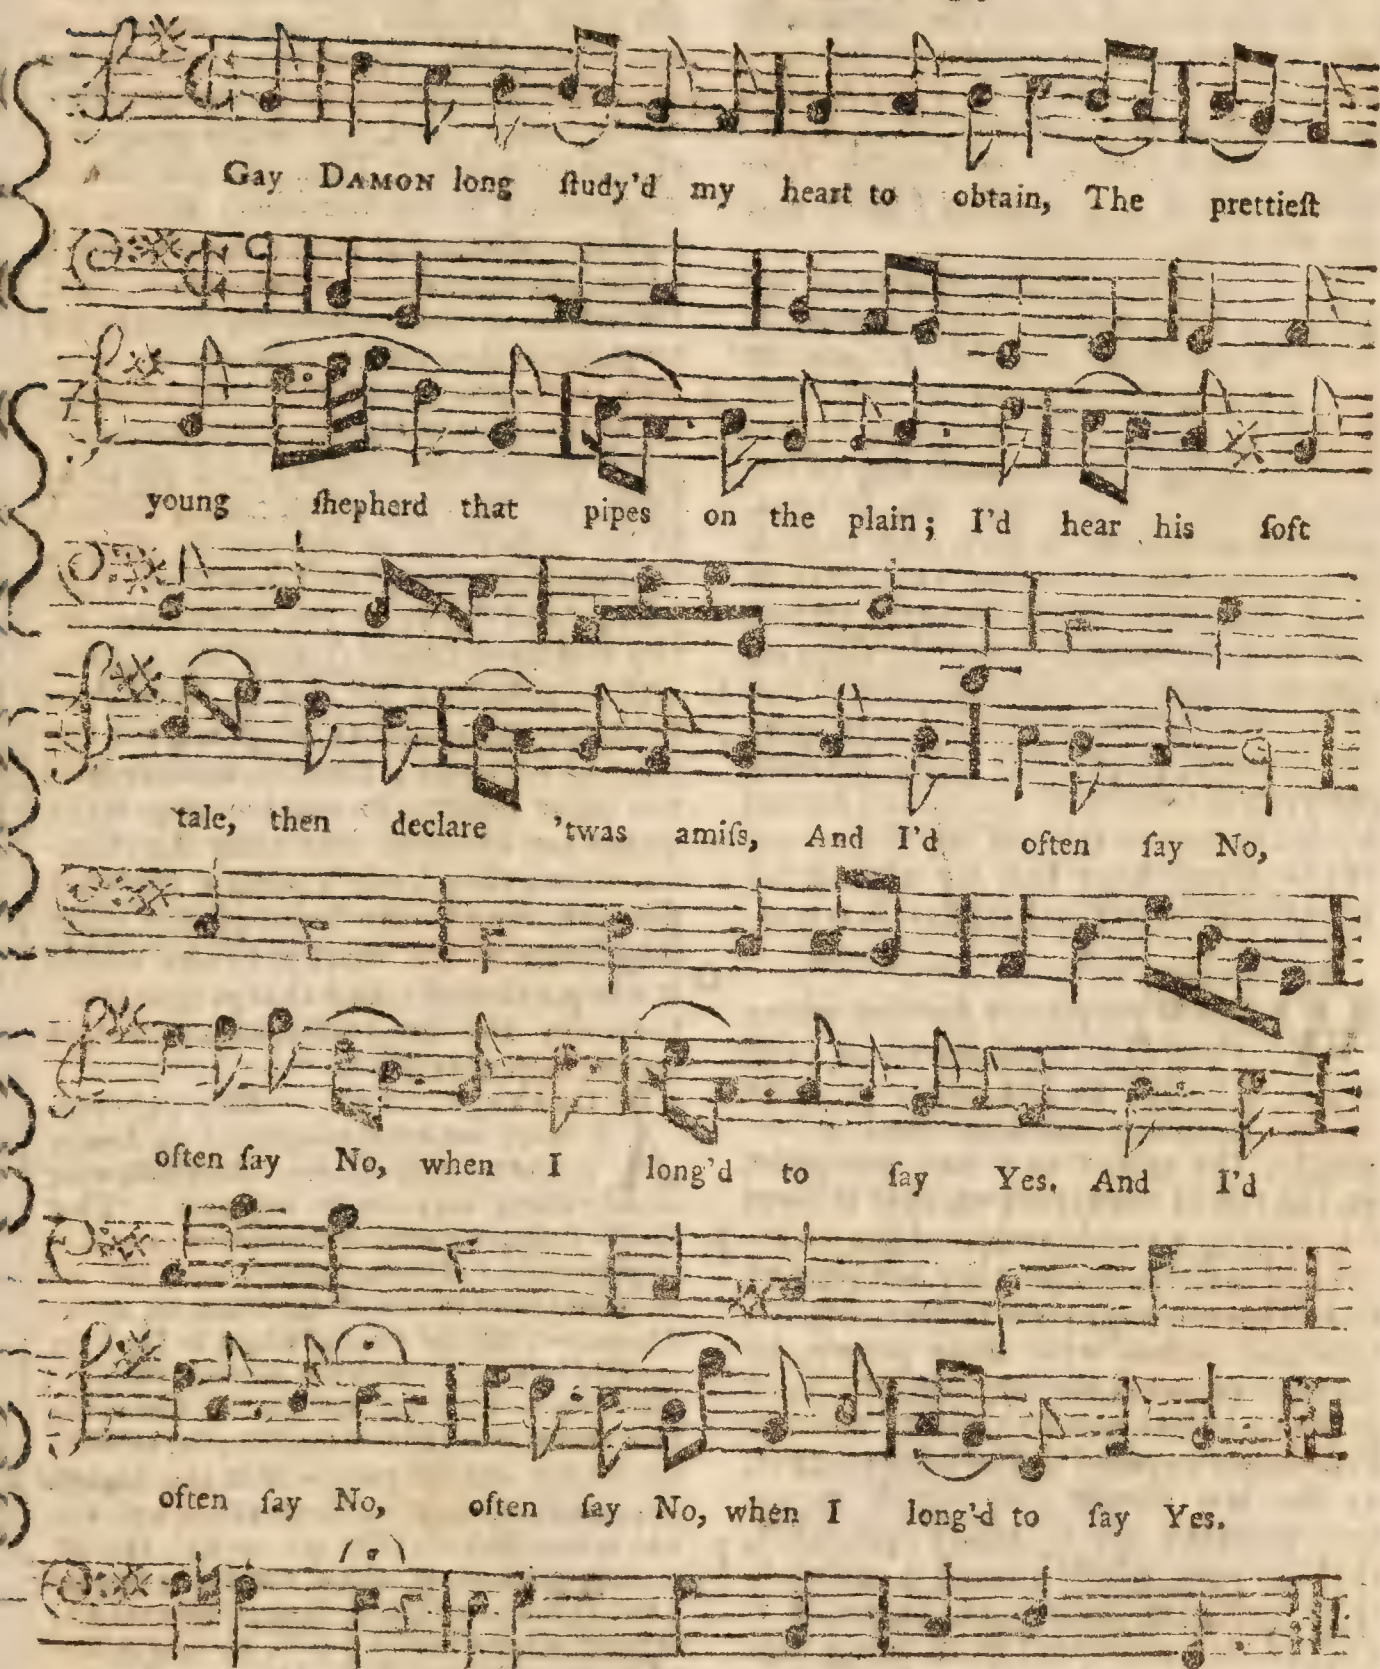 Gay DAMON long ſtudy'd my heart to obtain, The prettieſt
young ſhepherd that pipes on the plain; I'd hear his ſoft
tale, then declare 'twas amiſs, And I'd often ſay No,
often ſay No, when I long'd to ſay Yes. And I'd
often ſay No, often ſay No, when I long'd to ſay Yes.